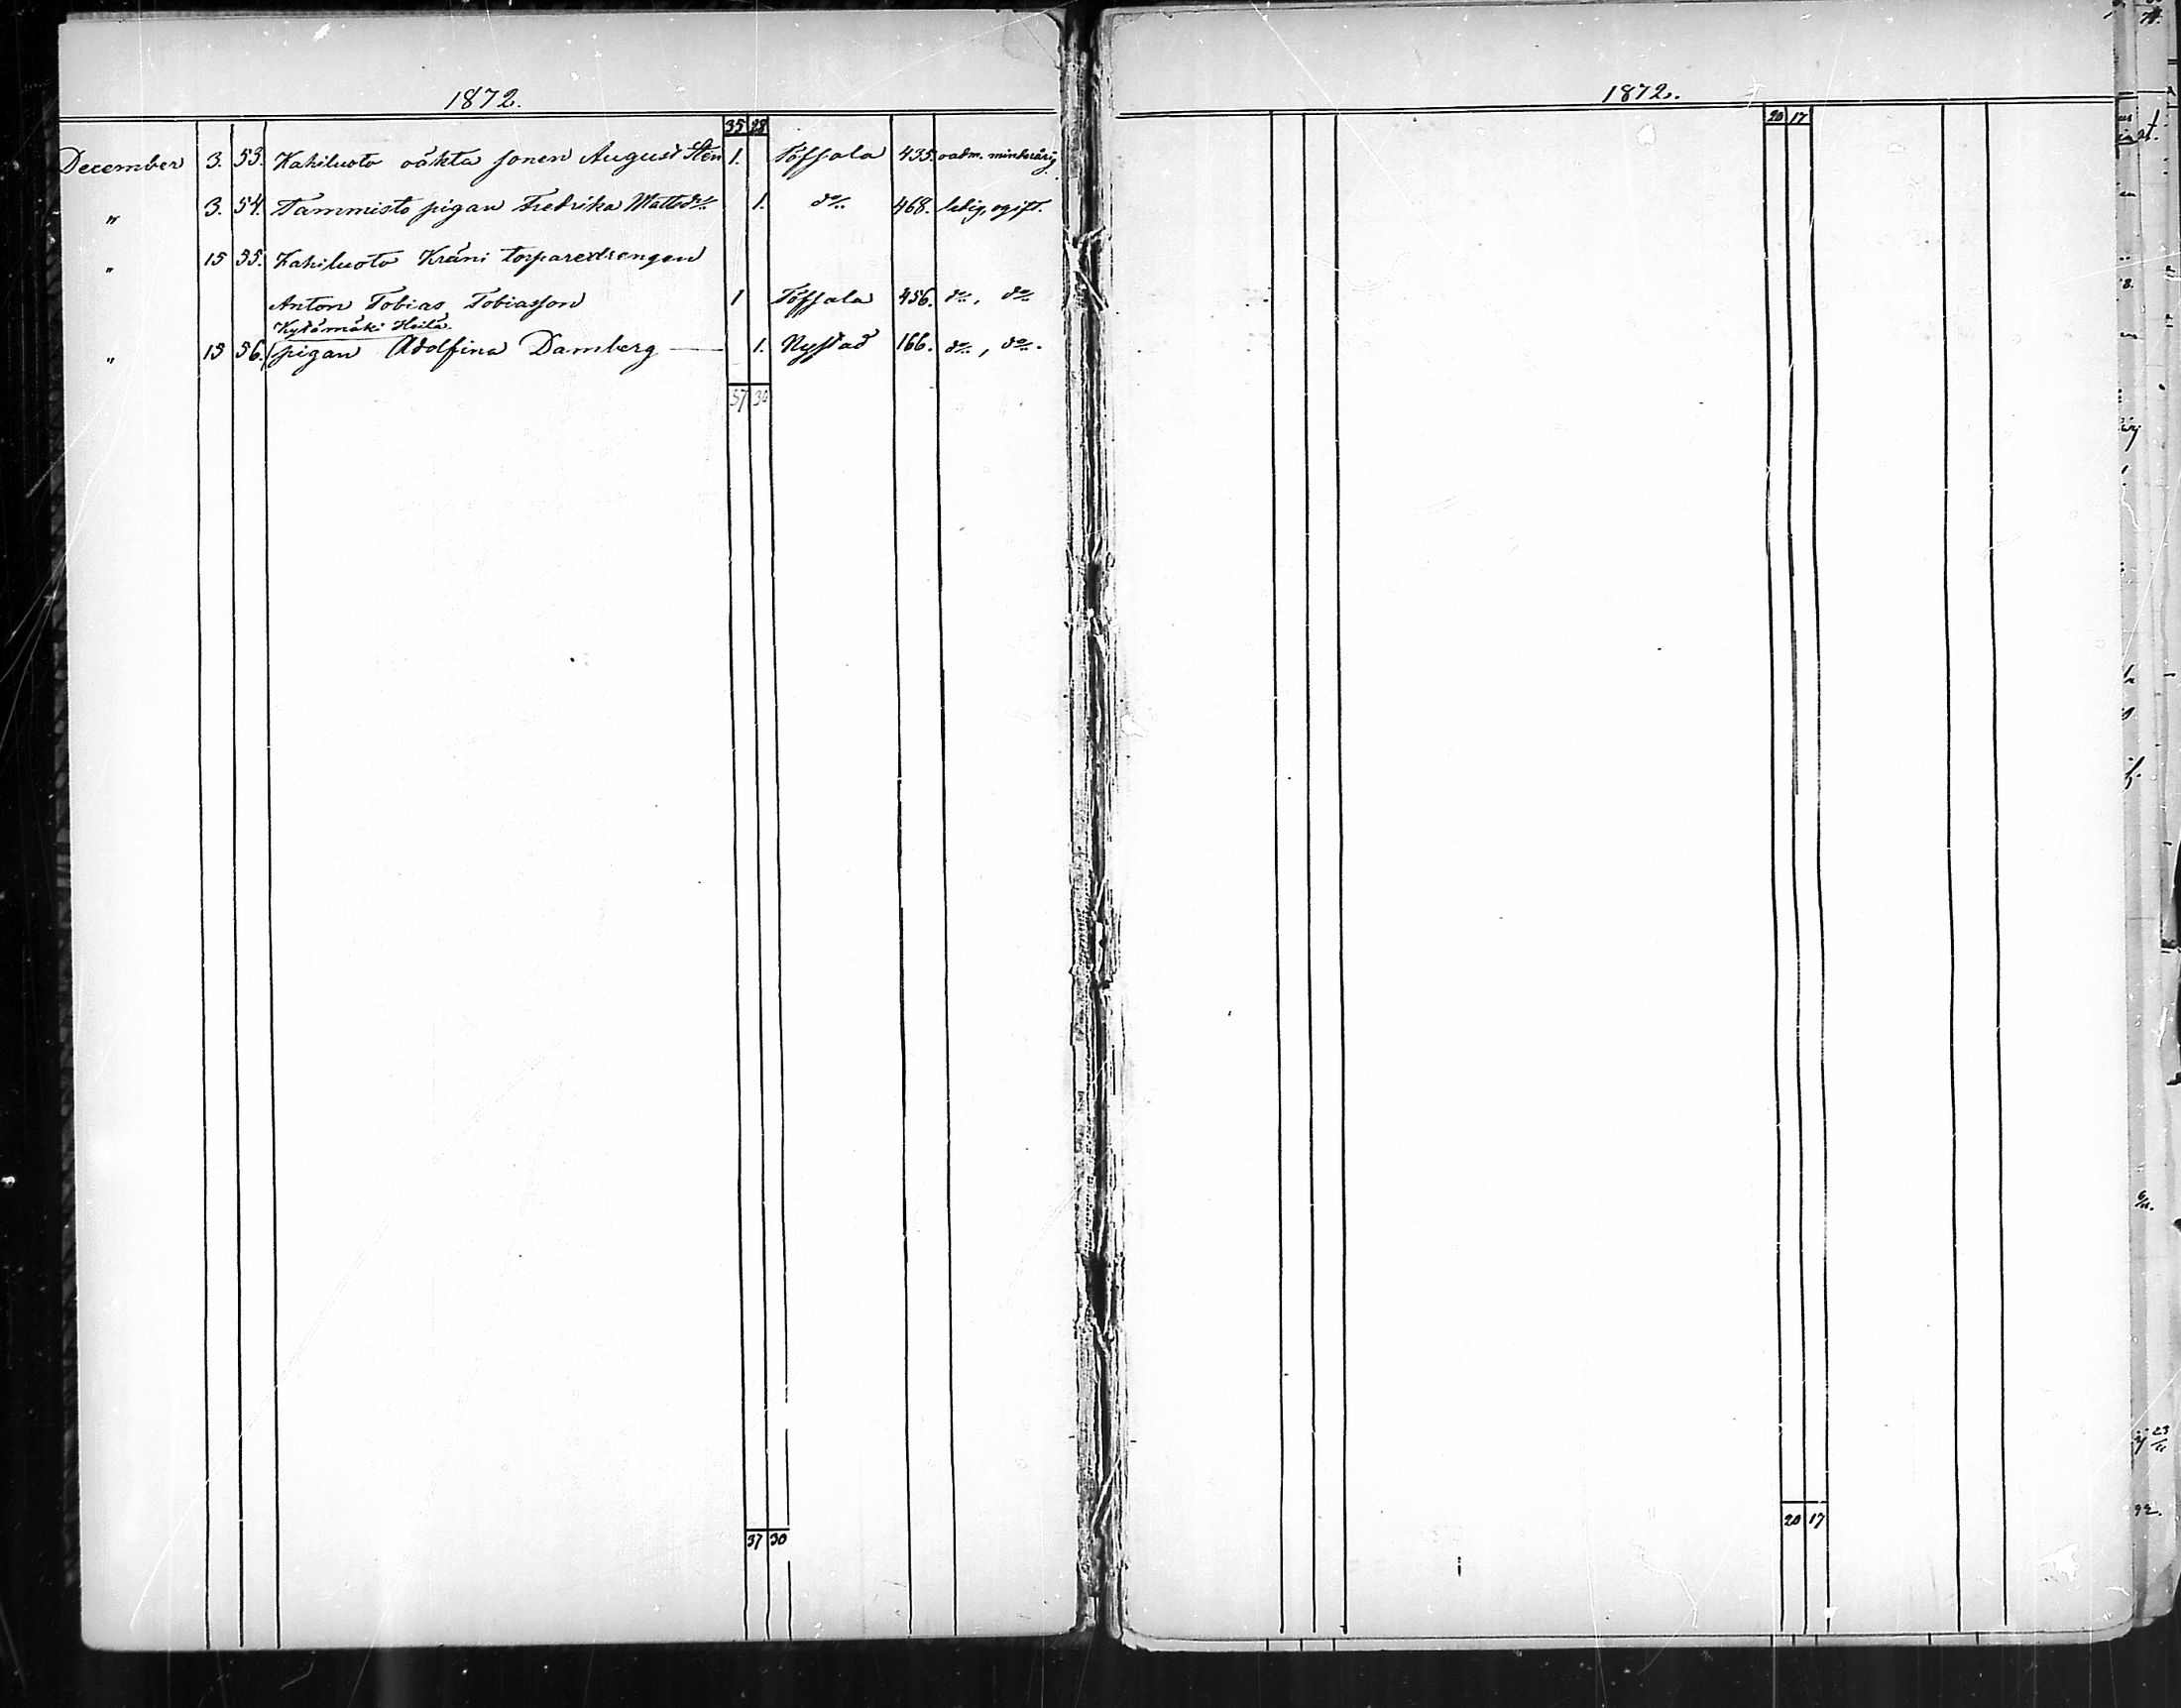 1872.
35 28
December 3. 53. Kahiluoto oäkta sonen August Sten 1. Töfsala 435. oadm. minderårig
" 3. 54. Tammisto pigan Fredrika Mattsdr 1. do 468. ledig, ogift.
" 15 55. Kahiluoto Kräni torparedrengen
Anton Tobias Tobiasson 1 Töfsala 456. do, do
Kytömäki Heilä
" 15 56. pigan Adolfina Damberg — 1. Nystad 166. do, do.
37 30
37 30
1872.
20 17
20 17